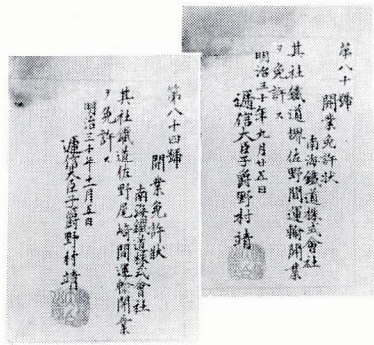 第八十號
開業免許状
南海鐵道株式會社
其社鐵道堺佐野間運輸開業
ヲ免許ス
明治三十年九月廿五日
遞信大臣子爵野村靖
第八十四號
開業免許状
南海鐵道株式會社
其社鐵道佐野尾崎間運輸開業
ヲ免許ス
明治三十年十一月五日
遞信大臣子爵野村靖